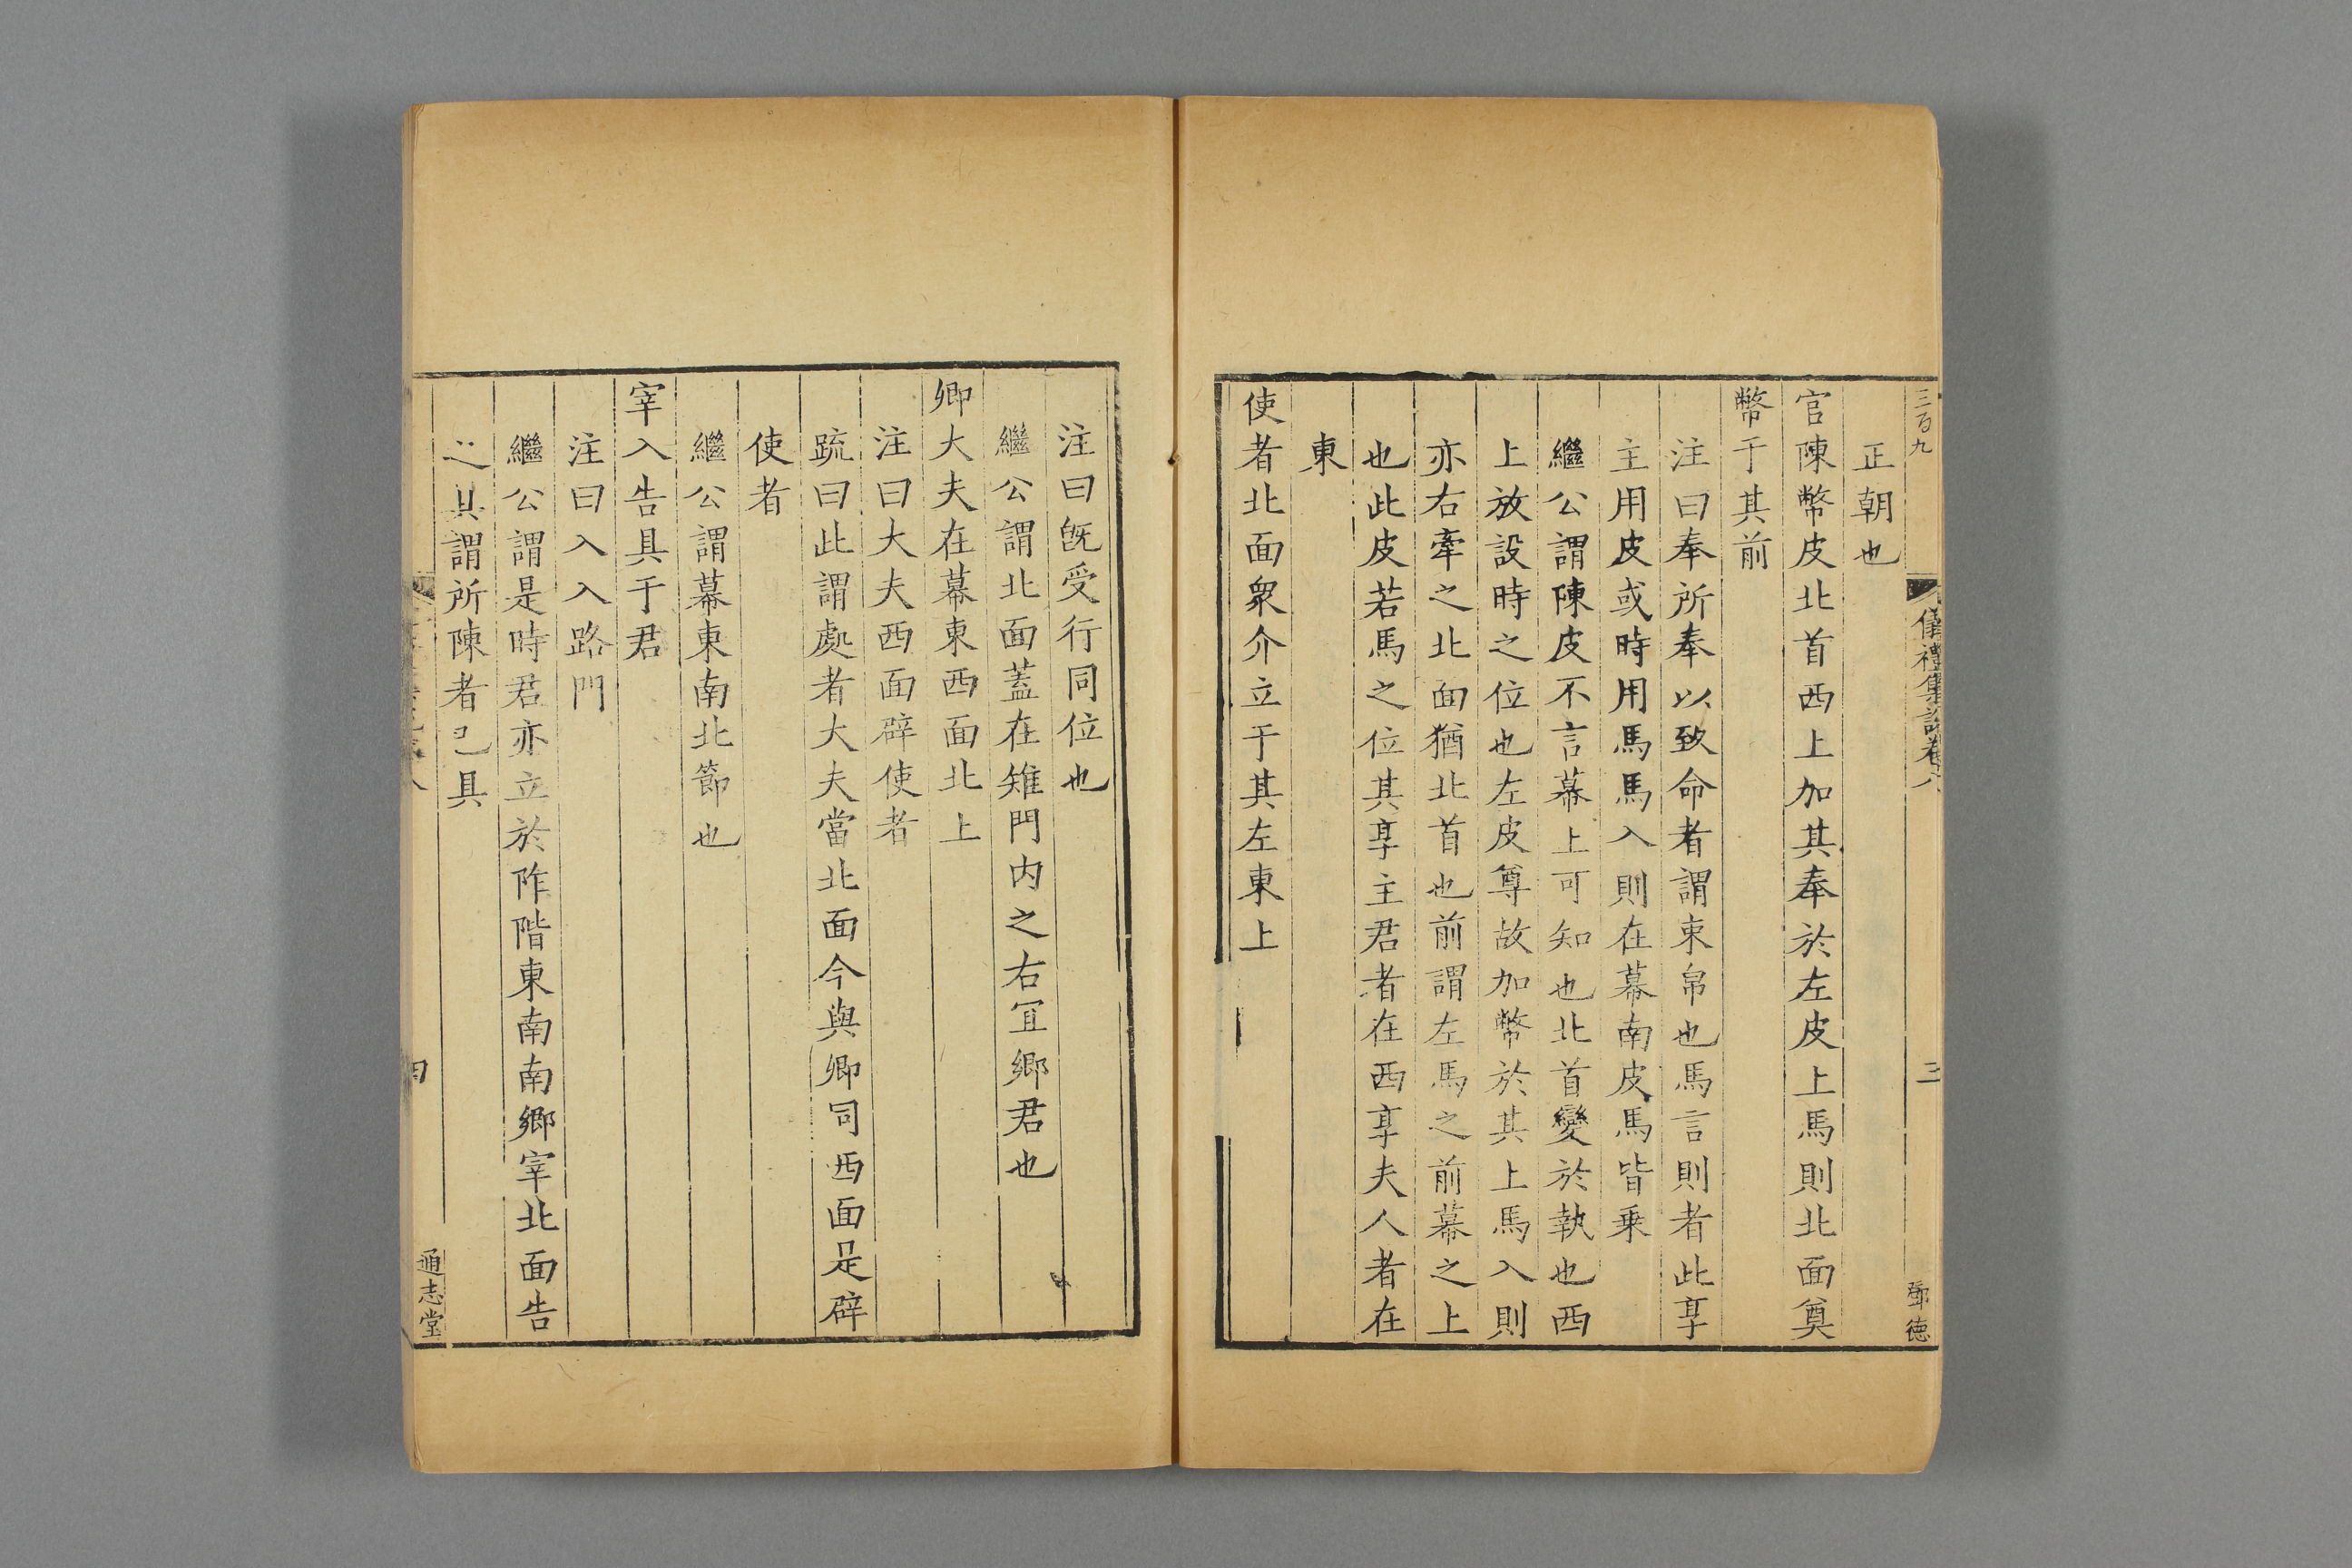 三百九
儀禮集說卷八
三
鄧德
正朝也
官陳幣皮北首西上加其奉於左皮上馬則北面奠
幣于其前
注曰奉所奉以致命者謂束帛也馬言則者此享
主用皮或時用馬馬入則在幕南皮馬皆乗
繼公謂陳皮不言幕上可知也北首變於執也西
上放設時之位也左皮尊故加幣於其上馬入則
亦右牽之北面猶北首也前謂左馬之前幕之上
也此皮若馬之位其享主君者在西享夫人者在
東
使者北面衆介立于其左東上
注曰旣受行同位也
繼公謂北面蓋在雉門内之右冝鄉君也
卿大夫在幕東西面北上
注曰大夫西面辟使者
䟽曰此謂處者大夫當北面今與卿同西面是辟
使者
繼公謂幕東南北節也
宰入告具于君
注曰入入路門
繼公謂是時君亦立於阼階東南南鄉宰北面告
之具謂所陳者已具
四
通志堂